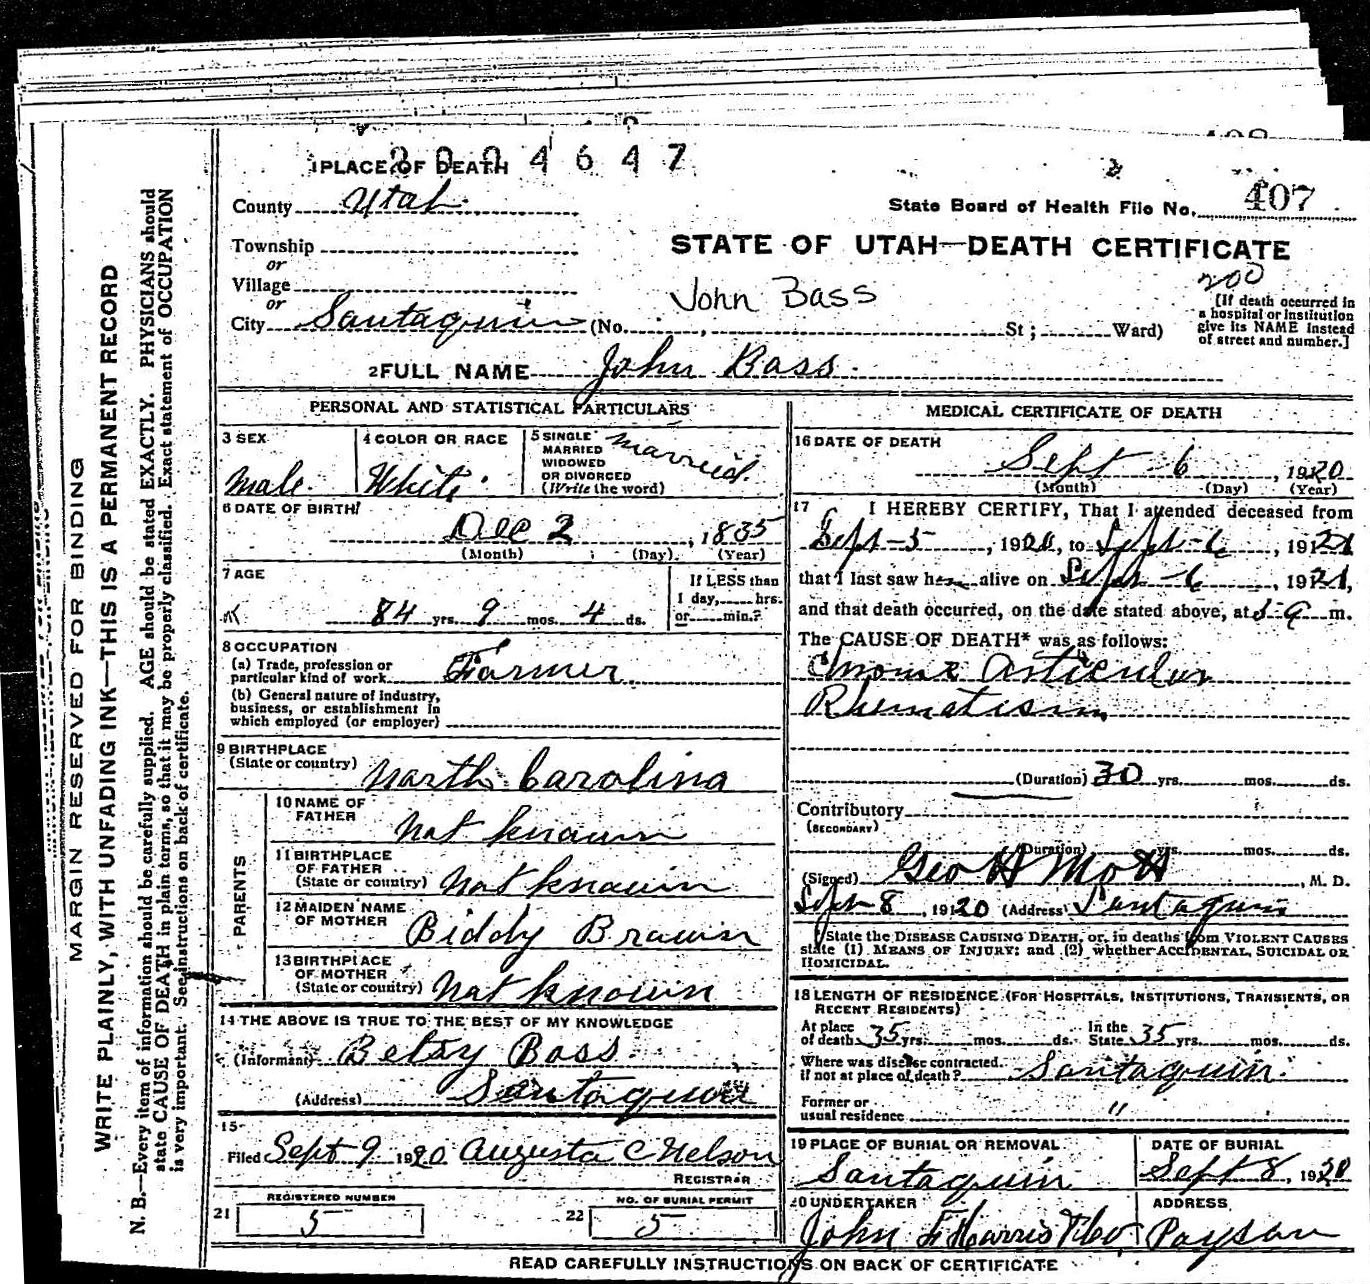 MARGIN RESERVED FOR BINDING
WRITE PLAINLY, WITH UNFADING INK—THIS IS A PERMANENT RECORD
N. B.—Every item of information should be carefully supplied. AGE should be stated EXACTLY. PHYSICIANS should
state CAUSE OF DEATH in plain terms, so that it may be properly classified. Exact statement of OCCUPATION
is very important. See instructions on back of certificate.
1 PLACE OF DEATH
2004647
County Utah
State Board of Health File No. 407
Township
or
Village
or
City Santaquin (No. , St; Ward)
STATE OF UTAH—DEATH CERTIFICATE
200
John Bass
[If death occurred in
a hospital or institution
give its NAME instead
of street and number.]
2 FULL NAME John Bass.
PERSONAL AND STATISTICAL PARTICULARS
3 SEX
Male.
4 COLOR OR RACE
White.
5 SINGLE
MARRIED
WIDOWED
OR DIVORCED
(Write the word)
Married.
6 DATE OF BIRTH
Dec 2, 1835
(Month) (Day) (Year)
7 AGE
84 yrs. 9 mos. 4 ds.
If LESS than
1 day, hrs.
or min.?
8 OCCUPATION
(a) Trade, profession or
particular kind of work Farmer.
(b) General nature of industry,
business, or establishment in
which employed (or employer)
9 BIRTHPLACE
(State or country) North Carolina
PARENTS
10 NAME OF
FATHER Not known
11 BIRTHPLACE
OF FATHER
(State or country) Not known
12 MAIDEN NAME
OF MOTHER Biddy Brown
13 BIRTHPLACE
OF MOTHER
(State or country) Not known
14 THE ABOVE IS TRUE TO THE BEST OF MY KNOWLEDGE
(Informant) Betsy Bass
(Address) Santaquin
15
Filed Sept 9 1920 Augusta C Nelson
REGISTRAR
REGISTERED NUMBER
21 5
NO. OF BURIAL PERMIT
22 5
MEDICAL CERTIFICATE OF DEATH
16 DATE OF DEATH
Sept 6, 1920
(Month) (Day) (Year)
17 I HEREBY CERTIFY, That I attended deceased from
Sept-5, 1920, to Sept-6, 192
that I last saw h alive on Sept-6, 192,
and that death occurred, on the date stated above, at m.
The CAUSE OF DEATH* was as follows:
Chronic Articular
Rhumatism
(Duration) 30 yrs. mos. ds.
Contributory
(SECONDARY)
(Duration) yrs. mos. ds.
(Signed) Geo H Mott, M. D.
Sept 8, 1920 (Address) Santaquin
*State the DISEASE CAUSING DEATH, or, in deaths from VIOLENT CAUSES
state (1) MEANS OF INJURY; and (2) whether ACCIDENTAL, SUICIDAL OR
HOMICIDAL.
18 LENGTH OF RESIDENCE (FOR HOSPITALS, INSTITUTIONS, TRANSIENTS, OR
RECENT RESIDENTS)
At place
of death 35 yrs. mos. ds.
In the
State 35 yrs. mos. ds.
Where was disease contracted.
if not at place of death? Santaquin.
Former or
usual residence "
19 PLACE OF BURIAL OR REMOVAL
Santaquin
DATE OF BURIAL
Sept 8, 1920
20 UNDERTAKER
John F Harris & Co.
ADDRESS
Payson
READ CAREFULLY INSTRUCTIONS ON BACK OF CERTIFICATE